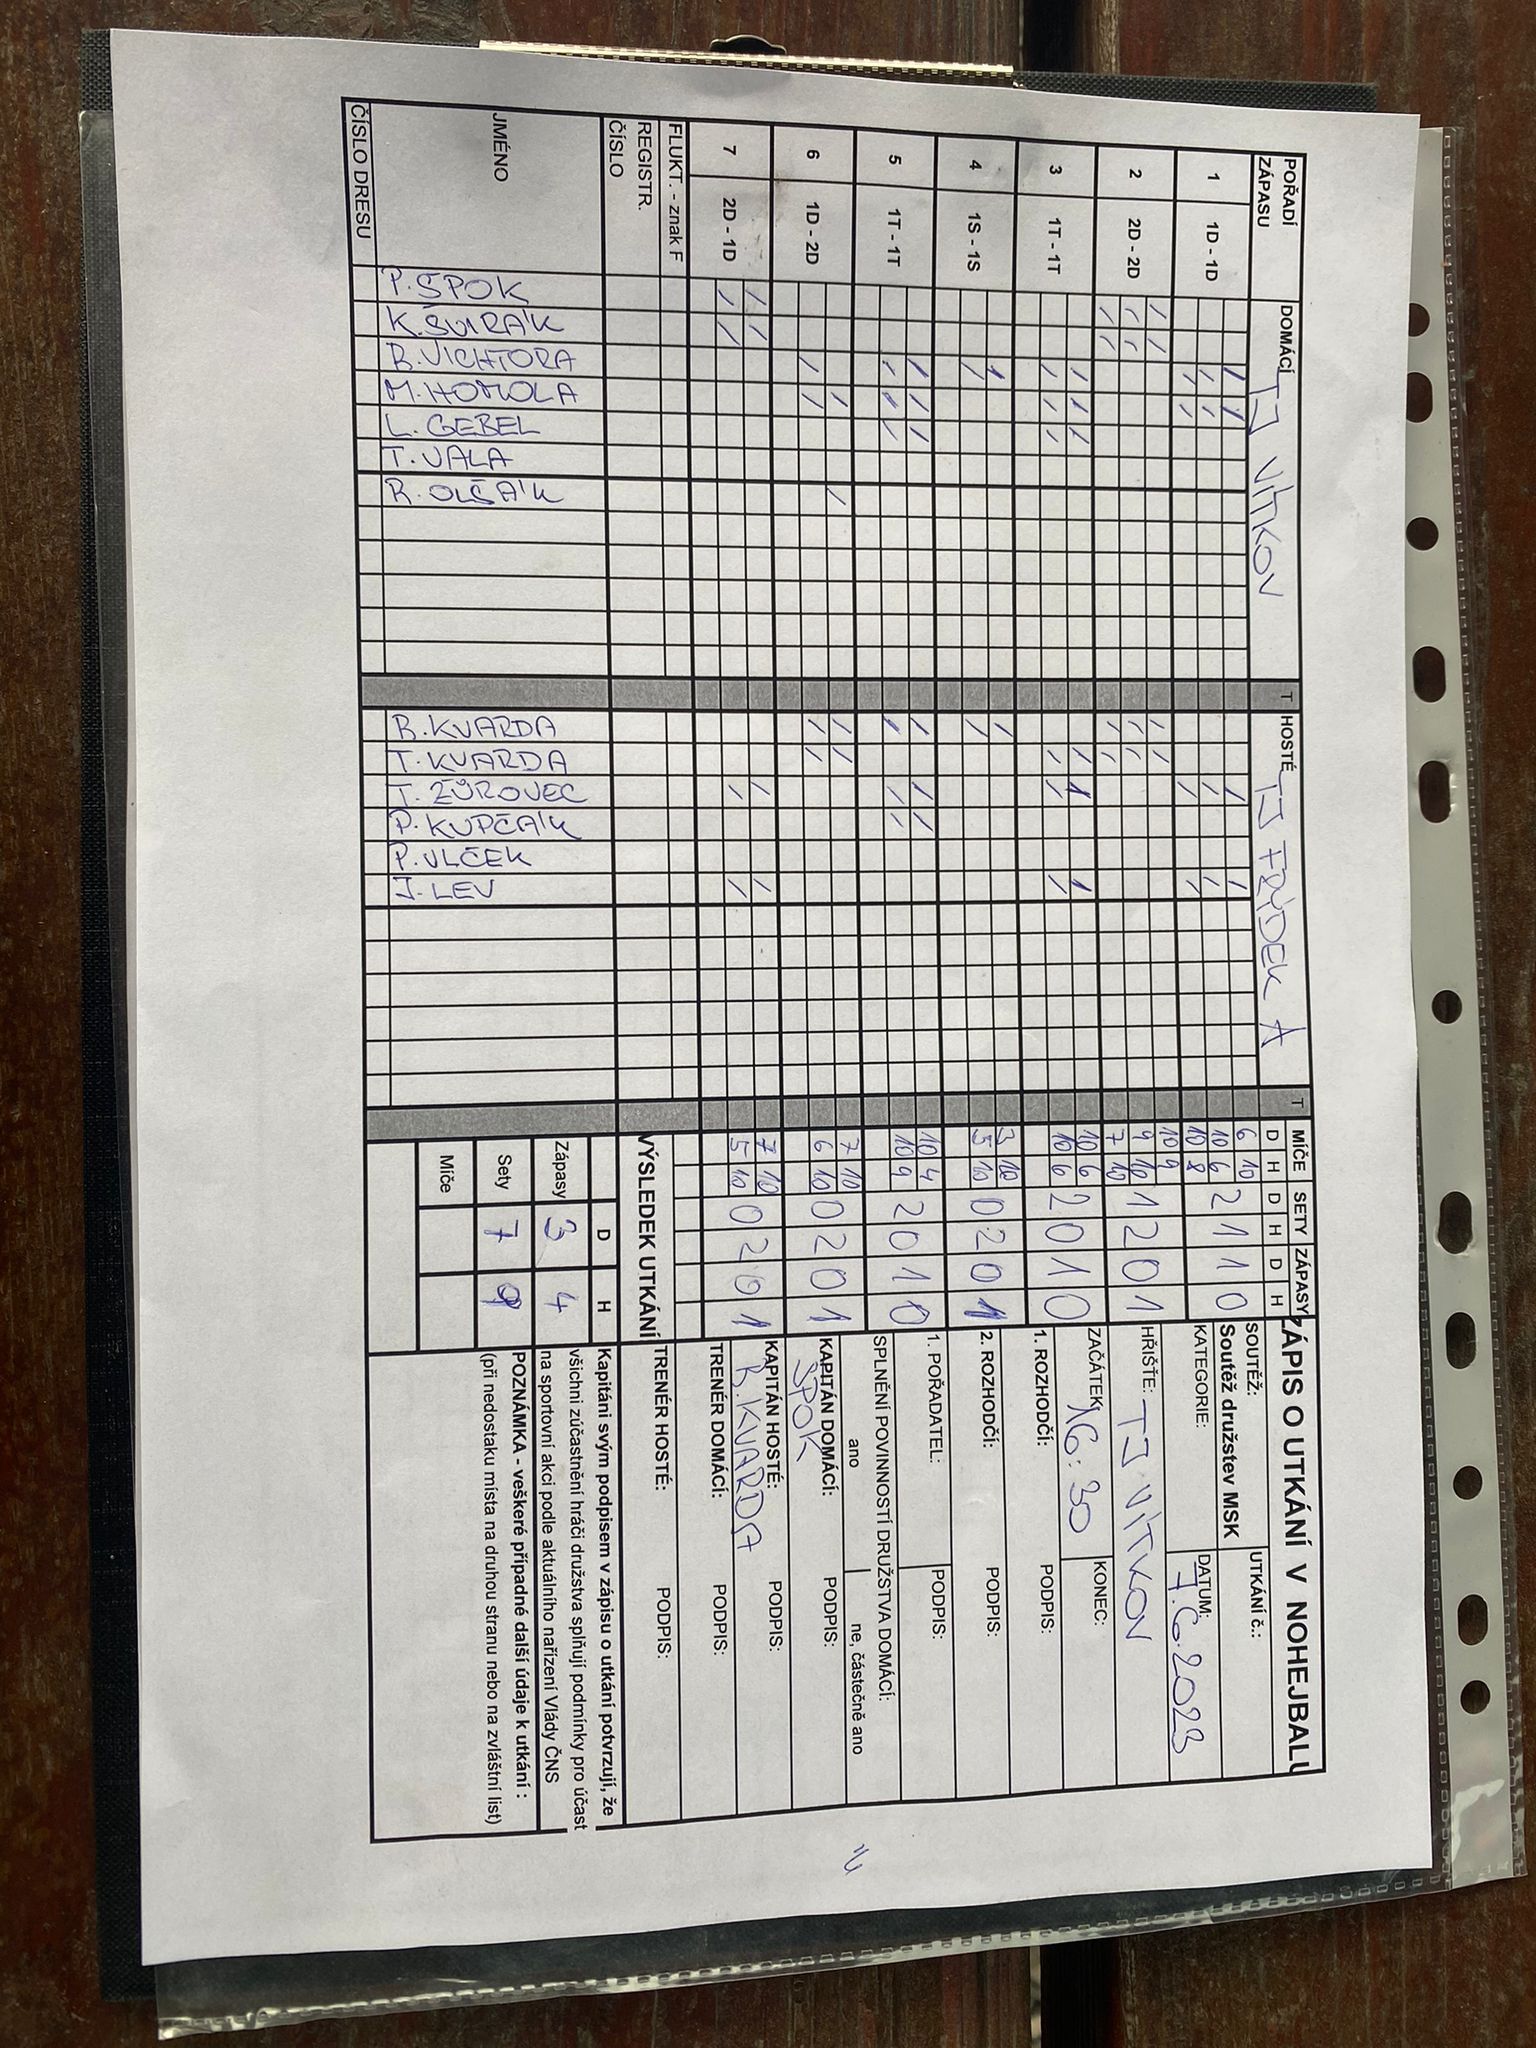 POŘADÍ ZÁPASU DOMÁCÍ TJ VÍTKOV T HOSTÉ TJ FRÝDEK A T MÍČE SETY ZÁPASY ZÁPIS O UTKÁNÍ V NOHEJBALU
D H D H D H
1 1D - 1D 6 10 2 1 1 0
10 6
10 8
2 2D - 2D 10 9 1 2 0 1
9 10
7 10
3 1T - 1T 10 6 2 0 1 0
10 6
4 1S - 1S 3 10 0 2 0 1
5 10
5 1T - 1T 10 4 2 0 1 0
10 9
6 1D - 2D 7 10 0 2 0 1
6 10
7 2D - 1D 7 10 0 2 0 1
5 10
FLUKT. - znak F
REGISTR. ČÍSLO
JMÉNO
P. ŠPOK
K. ŠVIRÁK
R. VICHTORA
M. HOMOLA
L. GEBEL
T. VALA
R. OLŠÁK
R. KVARDA
T. KVARDA
T. ZŮROVEC
P. KUPČÁK
P. VLČEK
J. LEV
ČÍSLO DRESU
VÝSLEDEK UTKÁNÍ
D H
Zápasy 3 4
Sety 7 9
Míče
SOUTĚŽ: UTKÁNÍ č.:
Soutěž družstev MSK
KATEGORIE: DATUM: 7.6.2023
HŘIŠTĚ: TJ VÍTKOV
ZAČÁTEK: 16:30 KONEC:
1. ROZHODČÍ: PODPIS:
2. ROZHODČÍ: PODPIS:
1. POŘADATEL: PODPIS:
SPLNĚNÍ POVINNOSTÍ DRUŽSTVA DOMÁCÍ:
ano ne, částečně ano
KAPITÁN DOMÁCÍ: PODPIS:
ŠPOK
KAPITÁN HOSTÉ: PODPIS:
R. KVARDA
TRENÉR DOMÁCÍ: PODPIS:
TRENÉR HOSTÉ: PODPIS:
Kapitáni svým podpisem v zápisu o utkání potvrzují, že
všichni zúčastnění hráči družstva splňují podmínky pro účast
na sportovní akci podle aktuálního nařízení Vlády ČNS
POZNÁMKA - veškeré případné další údaje k utkání :
(při nedostaku místa na druhou stranu nebo na zvláštní list)